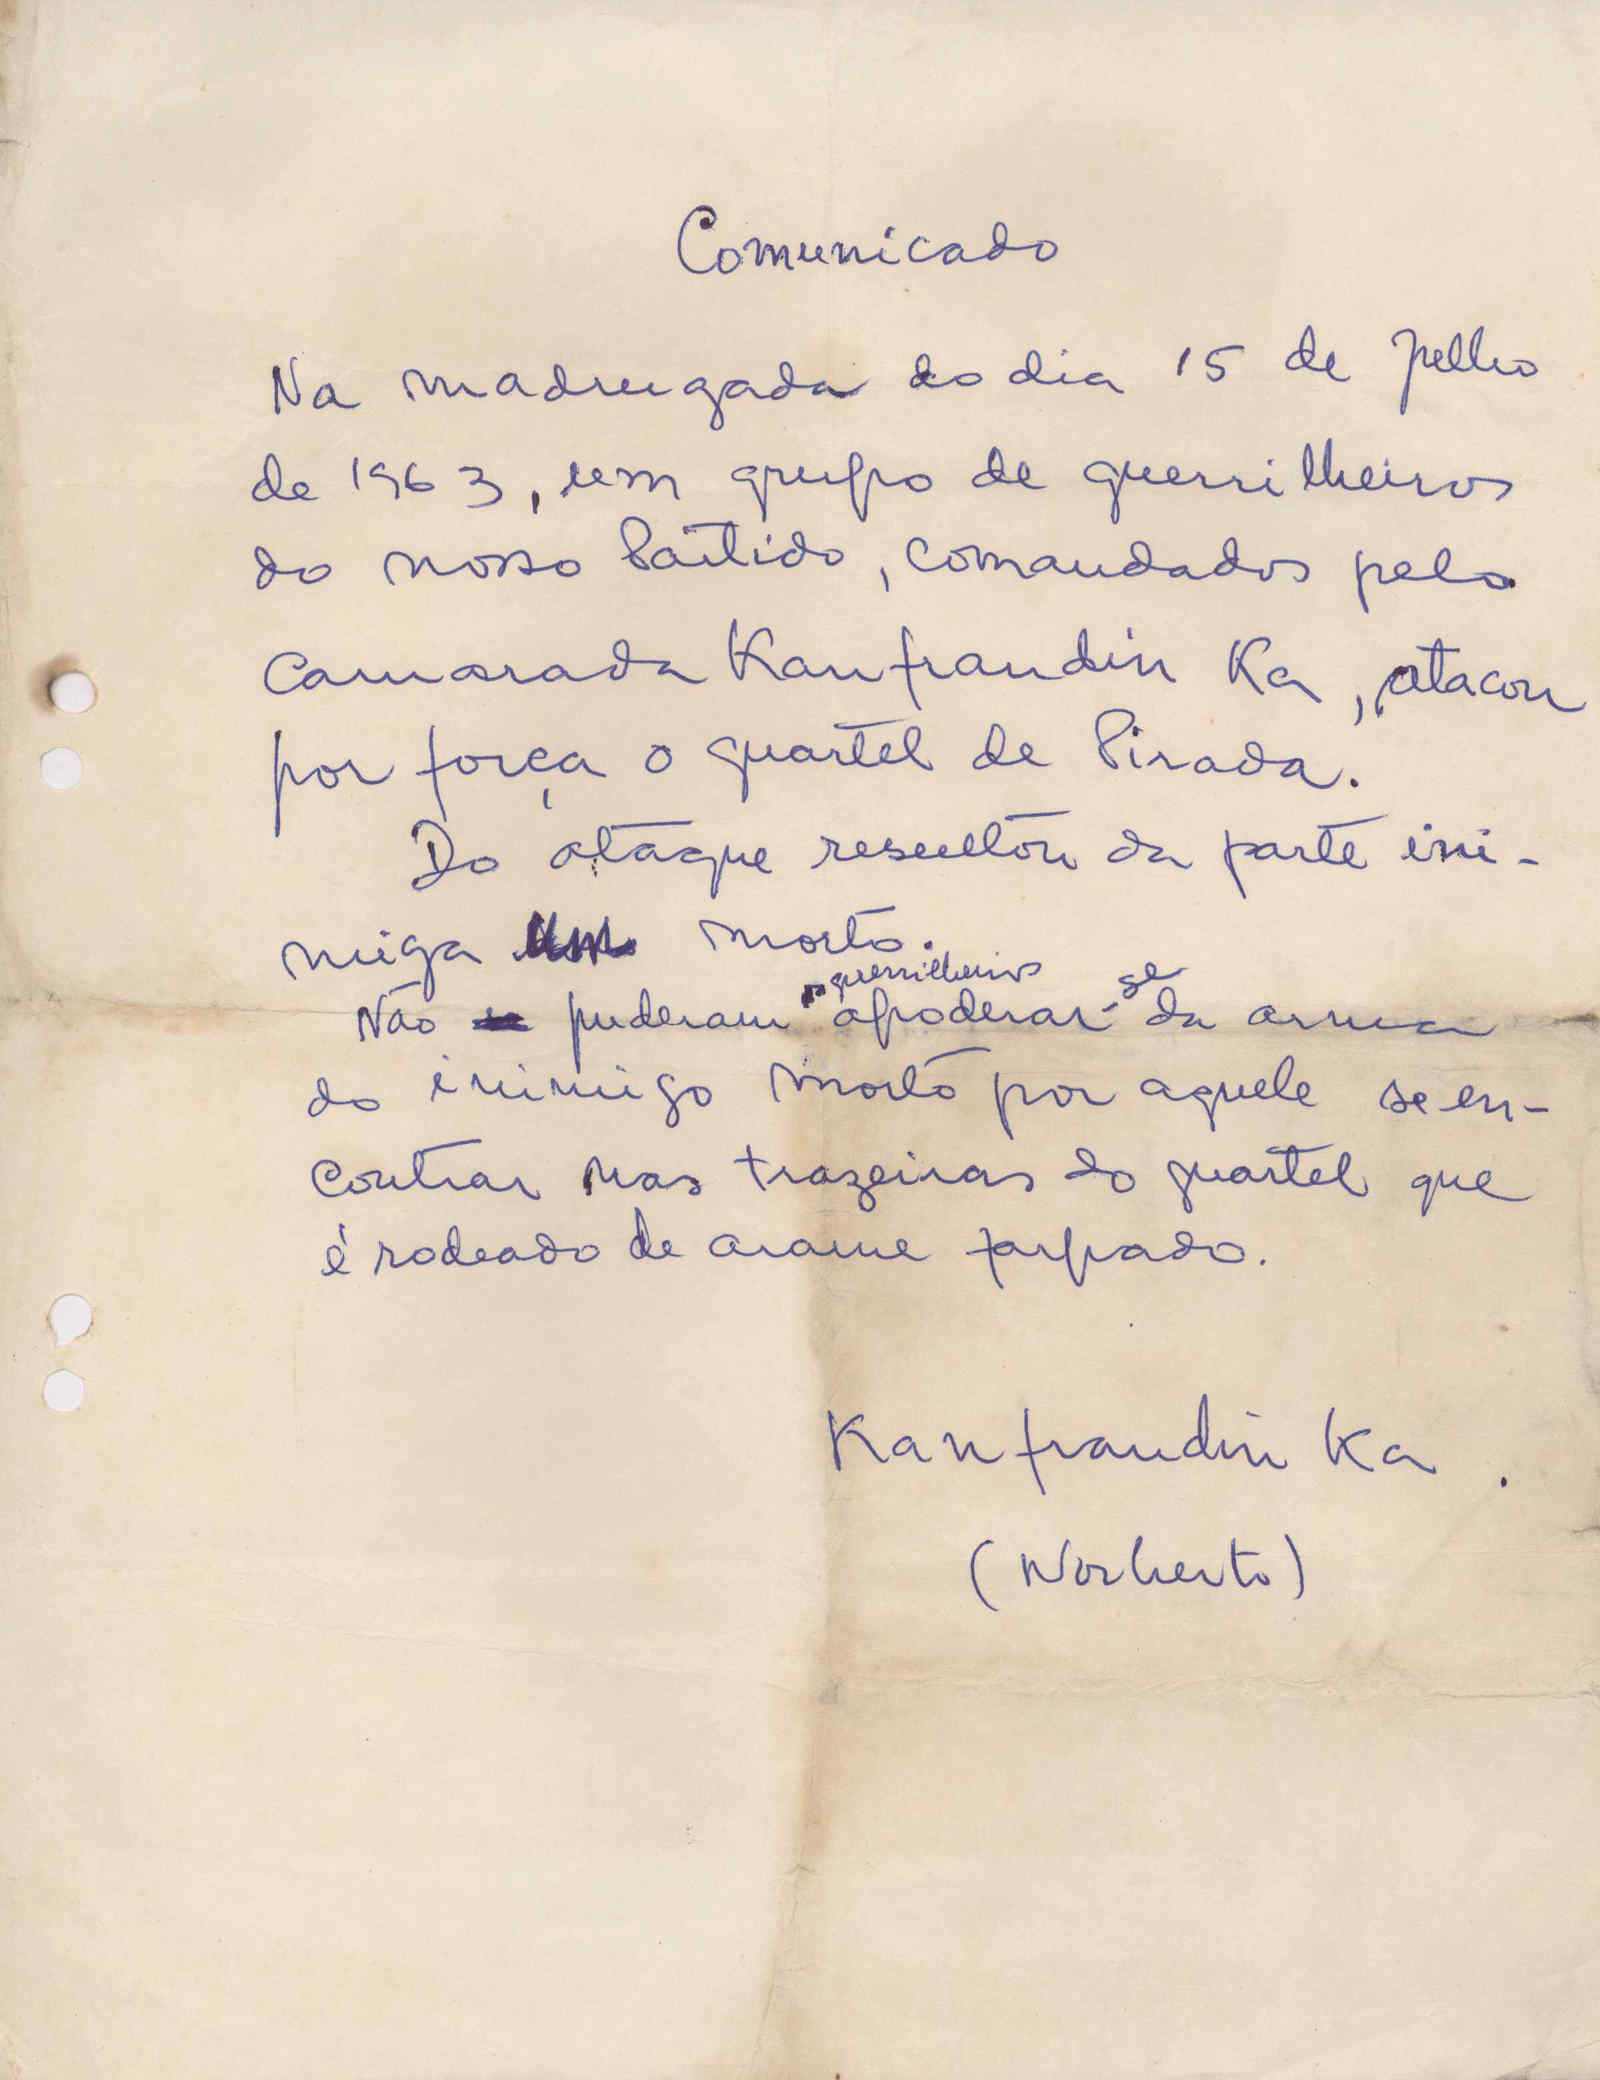 Comunicado
Na madrugada do dia 15 de Julho
de 1963, um grupo de guerrilheiros
do nosso Partido, comandados pelo
Camarada Kanfrandin Ka, atacou
por força o quartel de Pirada.
Do ataque resultou da parte ini-
miga um morto.
os guerrilheiros se
Não puderam apoderar- da arma
do inimigo morto por aquele se en-
contrar nas trazeiras do quartel que
é rodeado de arame farpado.
Kanfrandin Ka.
(Norberto)